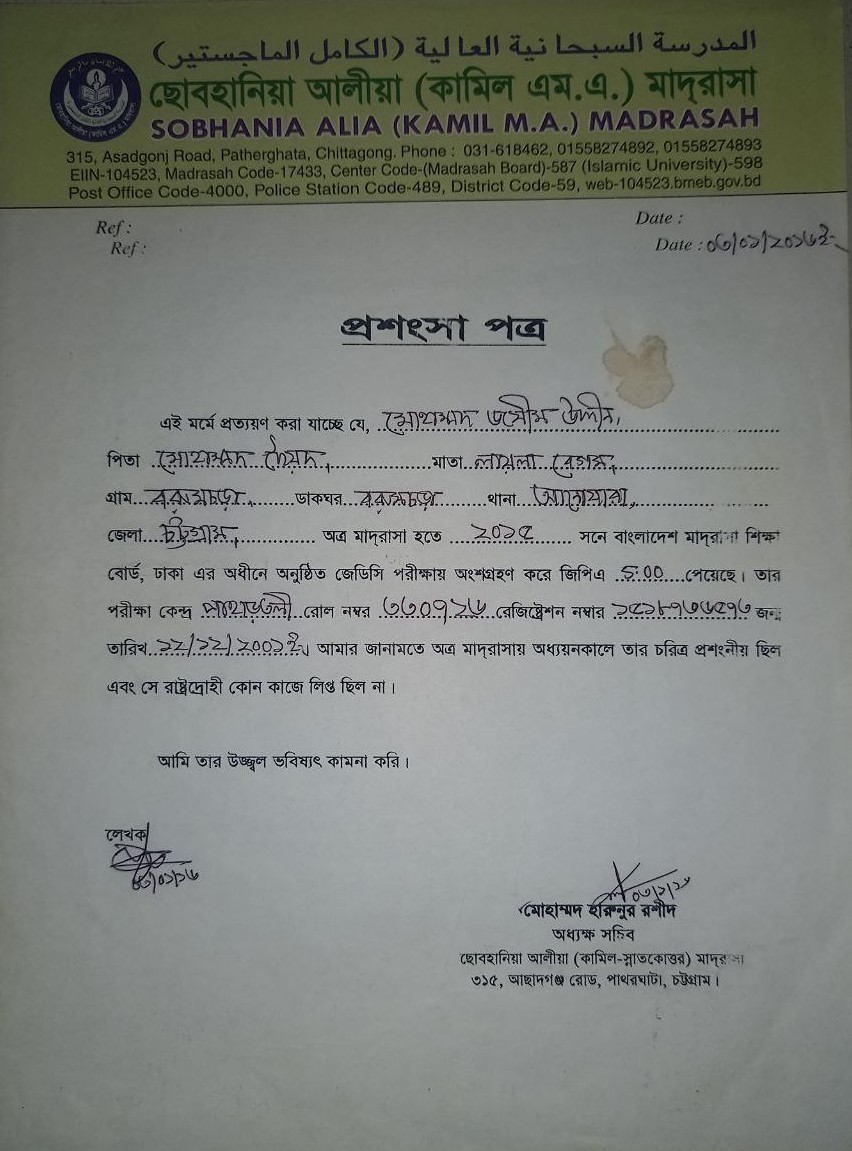 المدرسة السبحانية العالية (الكامل الماجستير)
ছোবহানিয়া আলীয়া (কামিল এম.এ.) মাদ্‌রাসা
SOBHANIA ALIA (KAMIL M.A.) MADRASAH
315, Asadgonj Road, Patherghata, Chittagong. Phone : 031-618462, 01558274892, 01558274893
EIIN-104523, Madrasah Code-17433, Center Code-(Madrasah Board)-587 (Islamic University)-598
Post Office Code-4000, Police Station Code-489, District Code-59, web-104523.bmeb.gov.bd
Ref : Date :
Ref : Date : ০৩/০১/২০১৬ইং
প্রশংসা পত্র
এই মর্মে প্রত্যয়ণ করা যাচ্ছে যে, মোহাম্মদ জসীম উদ্দীন,
পিতা মোহাম্মদ সৈয়দ, মাতা লায়লা বেগম,
গ্রাম বরুমচড়া, ডাকঘর বরুমচড়া থানা আনোয়ারা,
জেলা চট্টগ্রাম, অত্র মাদ্‌রাসা হতে ২০১৫ সনে বাংলাদেশ মাদ্‌রাসা শিক্ষা
বোর্ড, ঢাকা এর অধীনে অনুষ্ঠিত জেডিসি পরীক্ষায় অংশগ্রহণ করে জিপিএ ৫.00 পেয়েছে। তার
পরীক্ষা কেন্দ্র পাহাড়তলী রোল নম্বর ৩৩০৭২৬ রেজিষ্ট্রেশন নম্বার ১৫১৮৭৩৬৫৭৩ জন্ম
তারিখ ১২/১২/২০০১ইং। আমার জানামতে অত্র মাদ্‌রাসায় অধ্যয়নকালে তার চরিত্র প্রশংনীয় ছিল
এবং সে রাষ্ট্রদ্রোহী কোন কাজে লিপ্ত ছিল না।
আমি তার উজ্জ্বল ভবিষ্যৎ কামনা করি।
লেখক
০৩/০১/১৬
মোহাম্মদ হারুনুর রশীদ
অধ্যক্ষ সচিব
ছোবহানিয়া আলীয়া (কামিল-স্নাতকোত্তর) মাদ্‌রাসা
৩১৫, আছাদগঞ্জ রোড, পাথরঘাটা, চট্টগ্রাম।